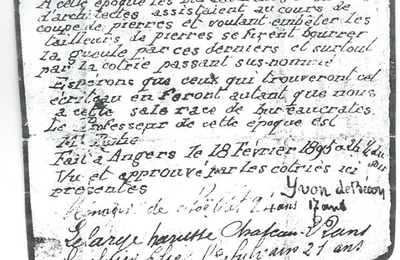 A cette époque les
d'architectes assistaient au cours de
coupe de pierres et voulant embêter les
tailleurs de pierres se firent bourrer
la gueule par ces derniers et surtout
par la cotrie passant sus-nommé
Espérons que ceux qui trouveront cet
écriteau en feront autant que nous
a cette sale race de bureaucrates.
Le Professeur de cette époque est
Mr
Fait à Angers le 18 Février 1895 à
Vu et approuvé par les cotries ici
présentes
Yvon de
17 ans
de 24 ans
Chateau
Sylvain 21 ans